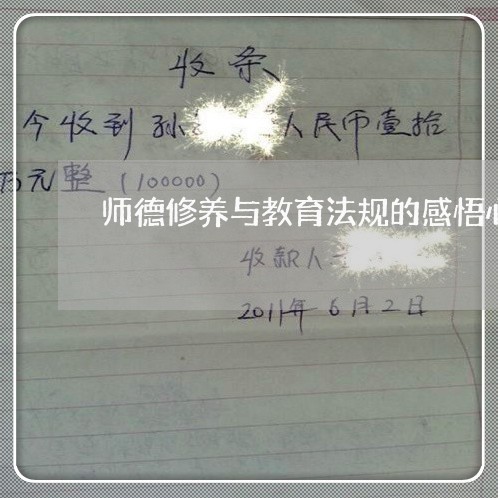 收条
今收到孙 人民币壹拾
万元整（100000）
师德修养与教育法规的感悟心
收款人
2011年6月2日